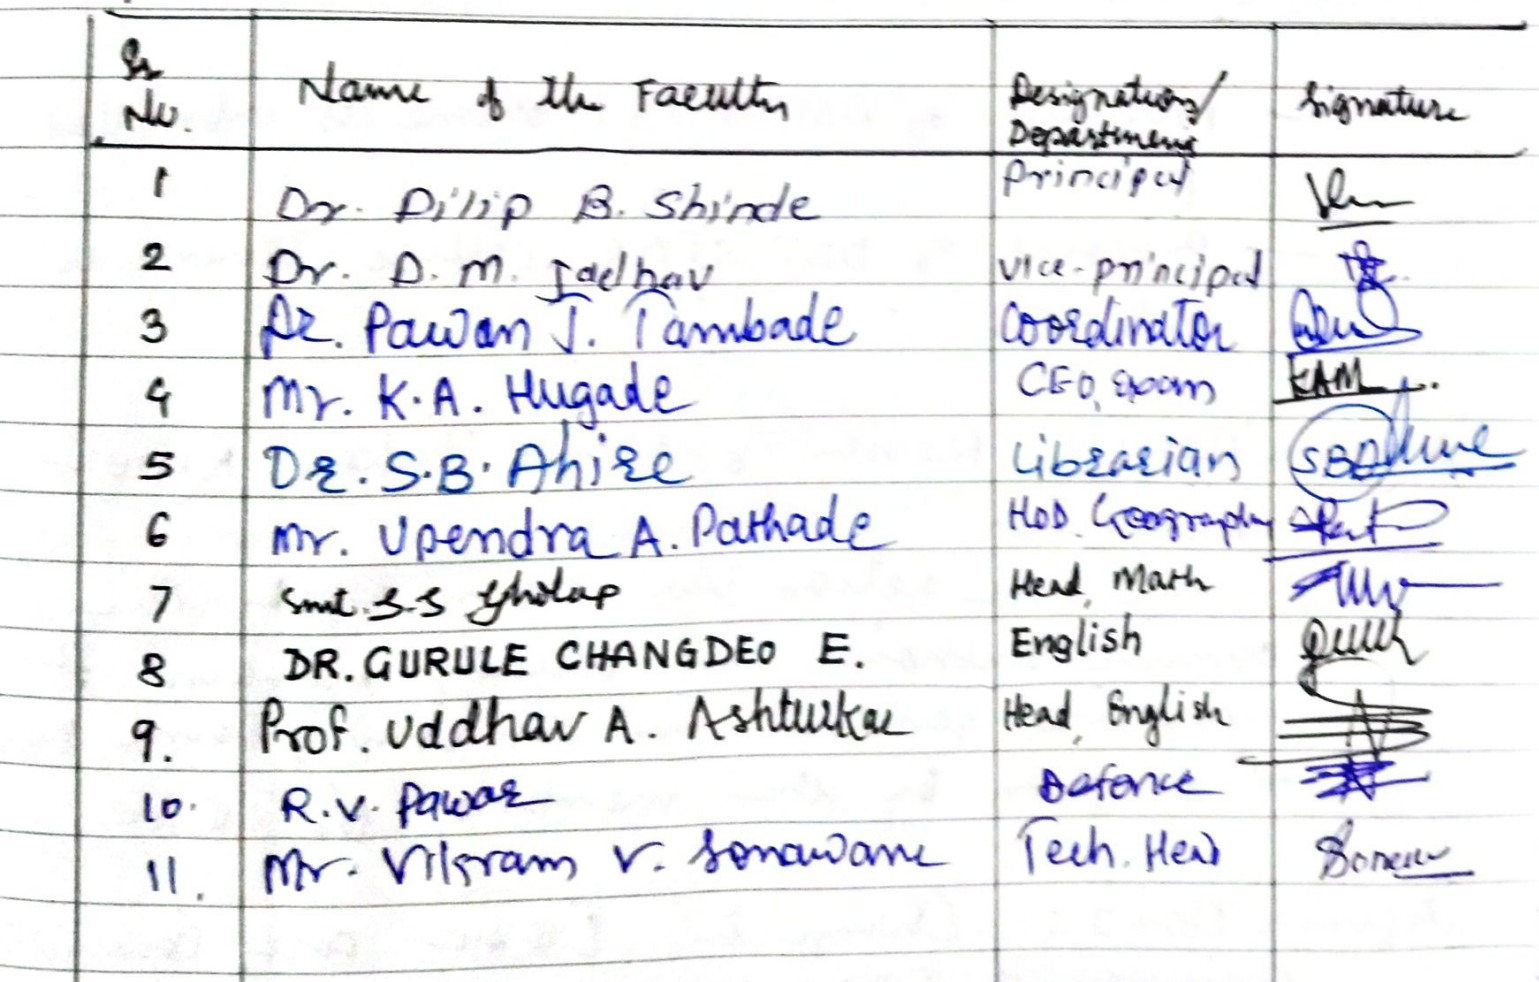 Sr No. Name of the Faculty Designation/ Department Signature
1 Dr. Dilip B. Shinde Principal
2 Dr. D. M. Jadhav Vice-principal
3 Dr. Pawan J. Tambade Coordinator
4 Mr. K.A. Hugade CEO, Exam KAM
5 Dr. S.B. Ahire Librarian SBAhire
6 Mr. Upendra A. Pathade HOD. Geography
7 Smt. S.S Gholap Head, Math
8 DR. GURULE CHANGDEO E. English
9. Prof. Uddhav A. Ashturkar Head, English
10. R.V. Pawar Defence
11. Mr. Vikram V. Sonawane Tech. Head